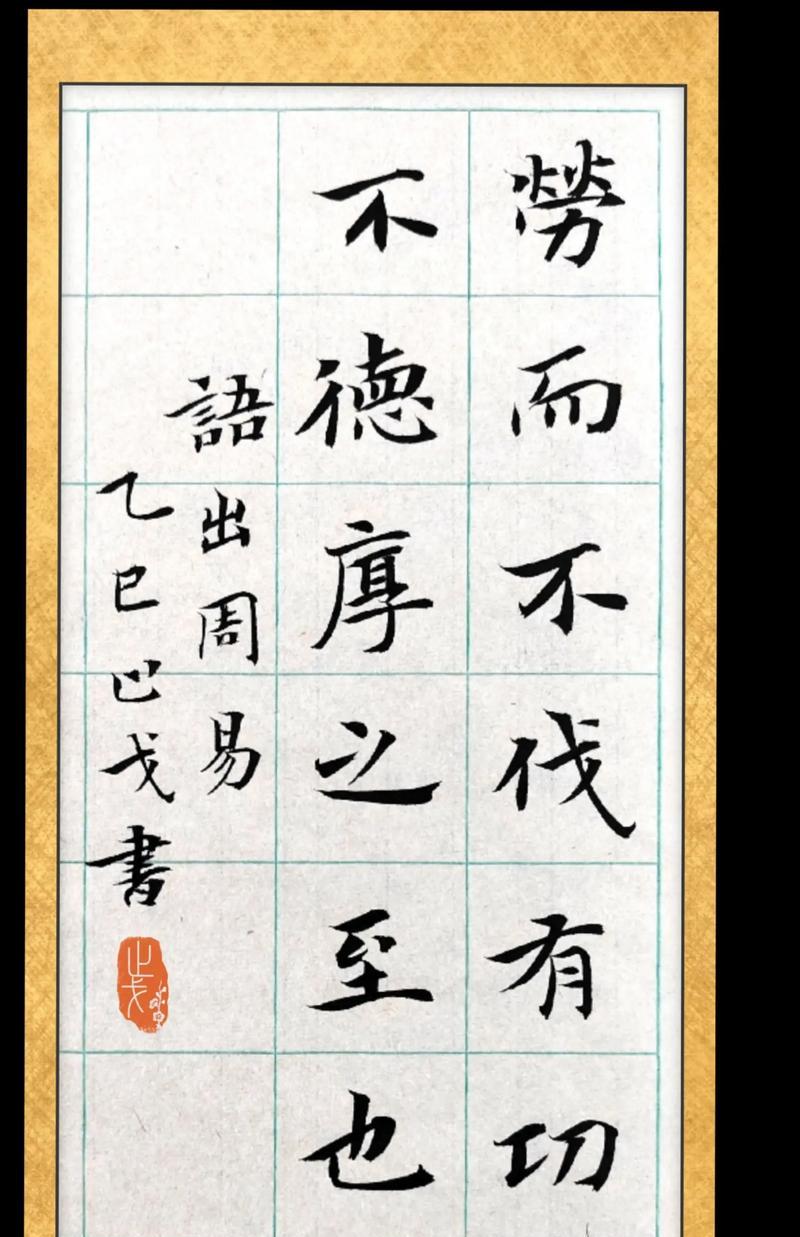 勞而不伐有功
不德厚之至也
語出周易
乙巳山戈書